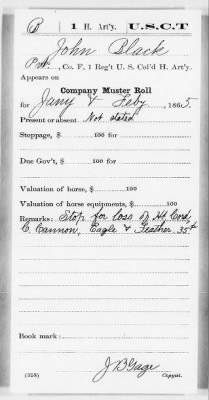 B 1 H. Art'y. U.S.C.T
John Black
Pvt., Co. F, 1 Reg't U. S. Col'd H. Art'y.
Appears on
Company Muster Roll
for Jany & Feby, 1865.
Present or absent Not stated
Stoppage, $ 100 for
Due Gov't, $ 100 for
Valuation of horse, $ 100
Valuation of horse equipments, $ 100
Remarks: Stop for loss of Ht. Cord,
C. Cannon, Eagle & Feather. 35¢
Book mark:
(358) J B Gage
Copyist.